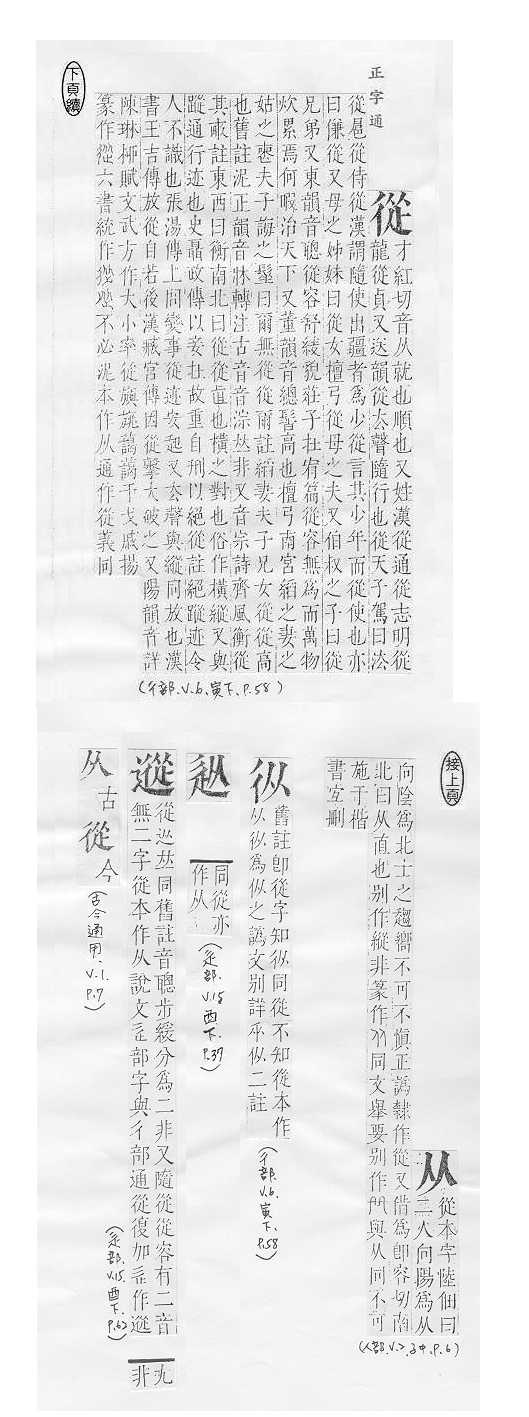 正字通
從
才紅切音从就也順也又姓漢從通從志明從
龍從貞又送韻從去聲隨行也從天子駕曰法
從扈從侍從漢謂隨使出疆者爲少從言其少年而從使也亦
曰傔從又母之姊妹曰從女檀弓從母之夫又伯叔之子曰從
兄弟又東韻音聰從容舒緩貌莊子在宥篇從容無爲而萬物
炊累焉何暇治天下又董韻音總髻高也檀弓南宮縚之妻之
姑之喪夫子誨之髽曰爾無從從爾註縚妻夫子兄女從從高
也舊註泥正韻音牀轉注古音音淙𠀤非又音宗詩齊風衡從
其畝註東西曰衡南北曰從從直也橫之對也俗作橫縱又與
蹤通行迹也史聶政傳以妾在故重自刑以絕從註絕蹤迹令
人不識也張湯傳上問變事從迹安起又去聲與縱同放也漢
書王吉傳放從自若後漢臧宮傳因從擊大破之又陽韻音詳
陳琳栁賦文武方作大小率從旟旐譪譪干戈戚揚
篆作從六書統作不必泥本作从通作從義同
下頁續
(彳部.V.6.寅下.P.58)
接上頁
从
從本字陸佃曰
二人向陽爲从
向陰爲北士之趨嚮不可不愼正譌隸作從又借爲卽容切南
北曰从直也別作縱非篆作从同文舉要別作與从同不可
施于楷
書宜刪
(人部.V.2.子中.P.6)
䢐
舊註卽從字知同從不知從本作
从爲似之譌文別詳䢐似二註
(彳部.V.6.寅下.P.58)
同從亦
作从
(辵部.V.15.酉下.P.37)
從𠀤同舊註音聰步緩分爲二非又隨從從容有二音
無二字從本作从說文辵部字與彳部通從復加辵作
非
(辵部.V.15.酉下.P.62)
从古從今
(古今通用.V.1.P.7)